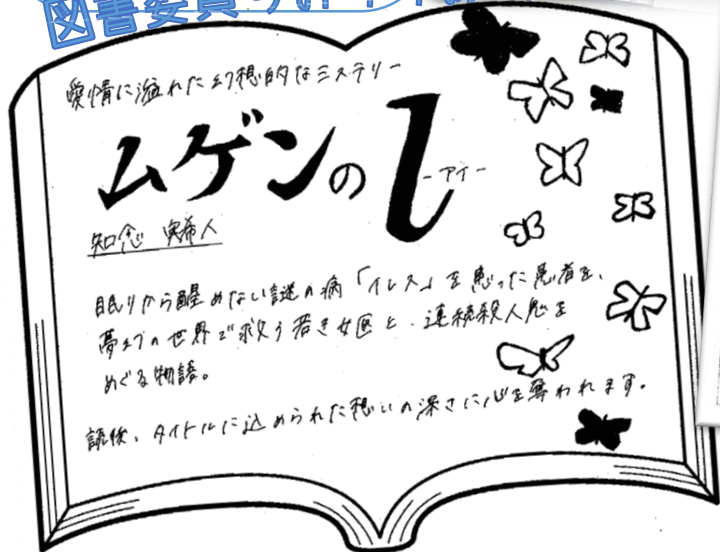 図書委員の
愛情に溢れた幻想的なミステリー
ムゲンのi
-アイ-
知念 実希人
眠りから醒めない謎の病「イレス」を患った患者を、
夢幻の世界で救う若き女医と、連続殺人鬼を
めぐる物語。
読後、タイトルに込められた想いの深さに心を奪われます。